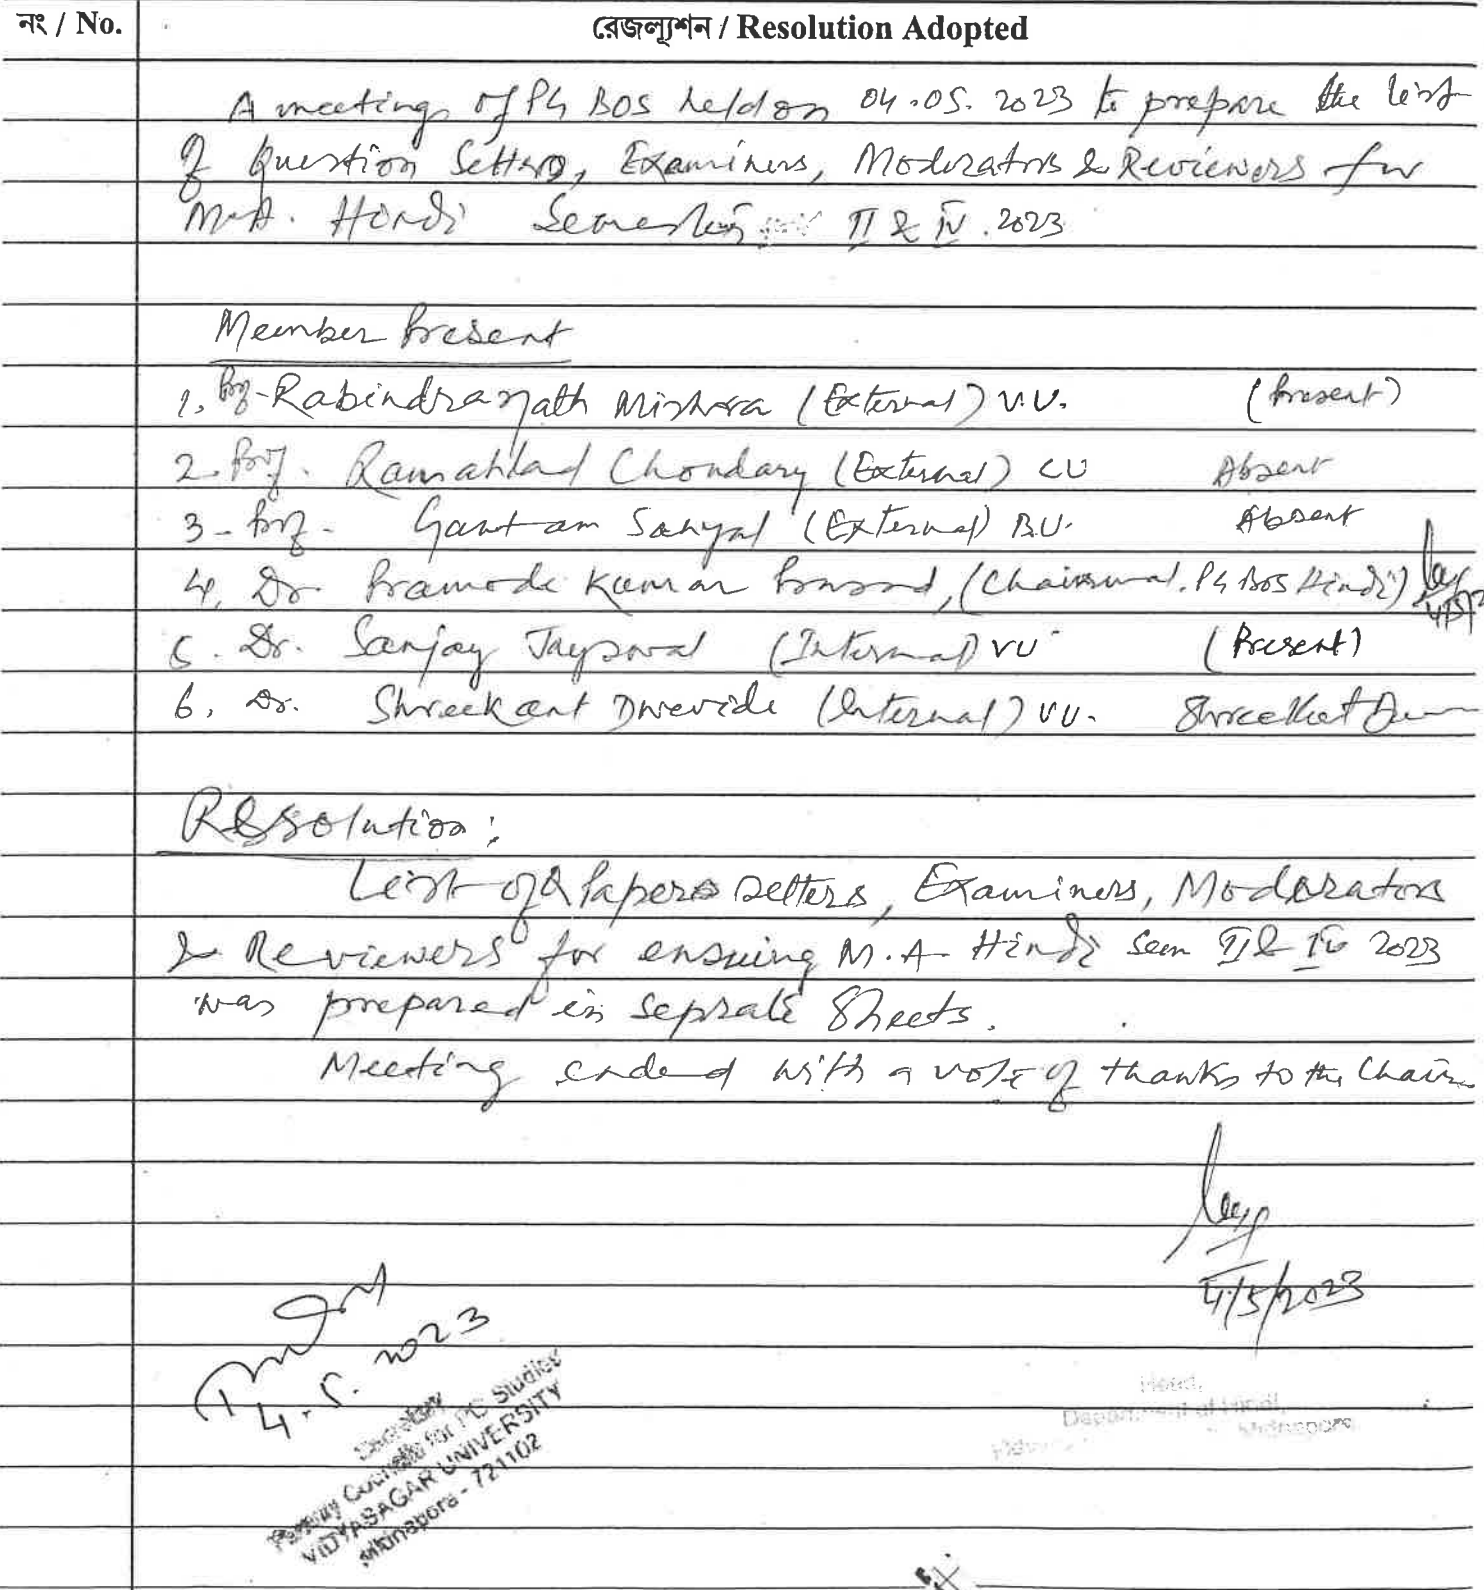 নং / No.
রেজল্যুশন / Resolution Adopted
A meeting of PG BOS held on 04.05.2023 to prepare the list
of Question Setters, Examiners, Moderators & Reviewers for
M.A. Hindi Semester II & IV. 2023
Member Present
1. Prof. Rabindranath Mishra (External) V.U. (Present)
2. Prof. Ramahlad Chondary (External) CU Absent
3 - Prof. Gautam Sanyal (External) B.U. Absent
4. Dr. Pramode Kumar Prasad, (Chairman. PG BOS Hindi)
5. Dr. Sanjay Jayswal (Internal) VU (Present)
6. Dr. Shreekant Dwevide (Internal) VU. Shreekant
Resolution:
List of Papers setters, Examiners, Moderators
& Reviewers for ensuing M.A. Hindi Sem II & IV 2023
was prepared in seprate Sheets.
Meeting ended with a vote of thanks to the Chair
4/5/2023
4.5.2023
Secretary
Faculty Councils for PG Studies
VIDYASAGAR UNIVERSITY
Midnapore - 721102
Head,
Department of Hindi,
Midnapore